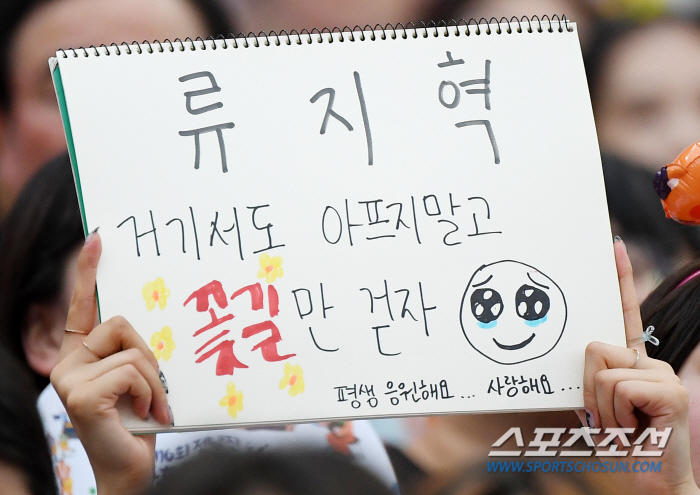 류지혁
거기서도 아프지말고
꽃길만 걷자
평생 응원해요... 사랑해요...
스포츠조선
WWW.SPORTSCHOSUN.COM